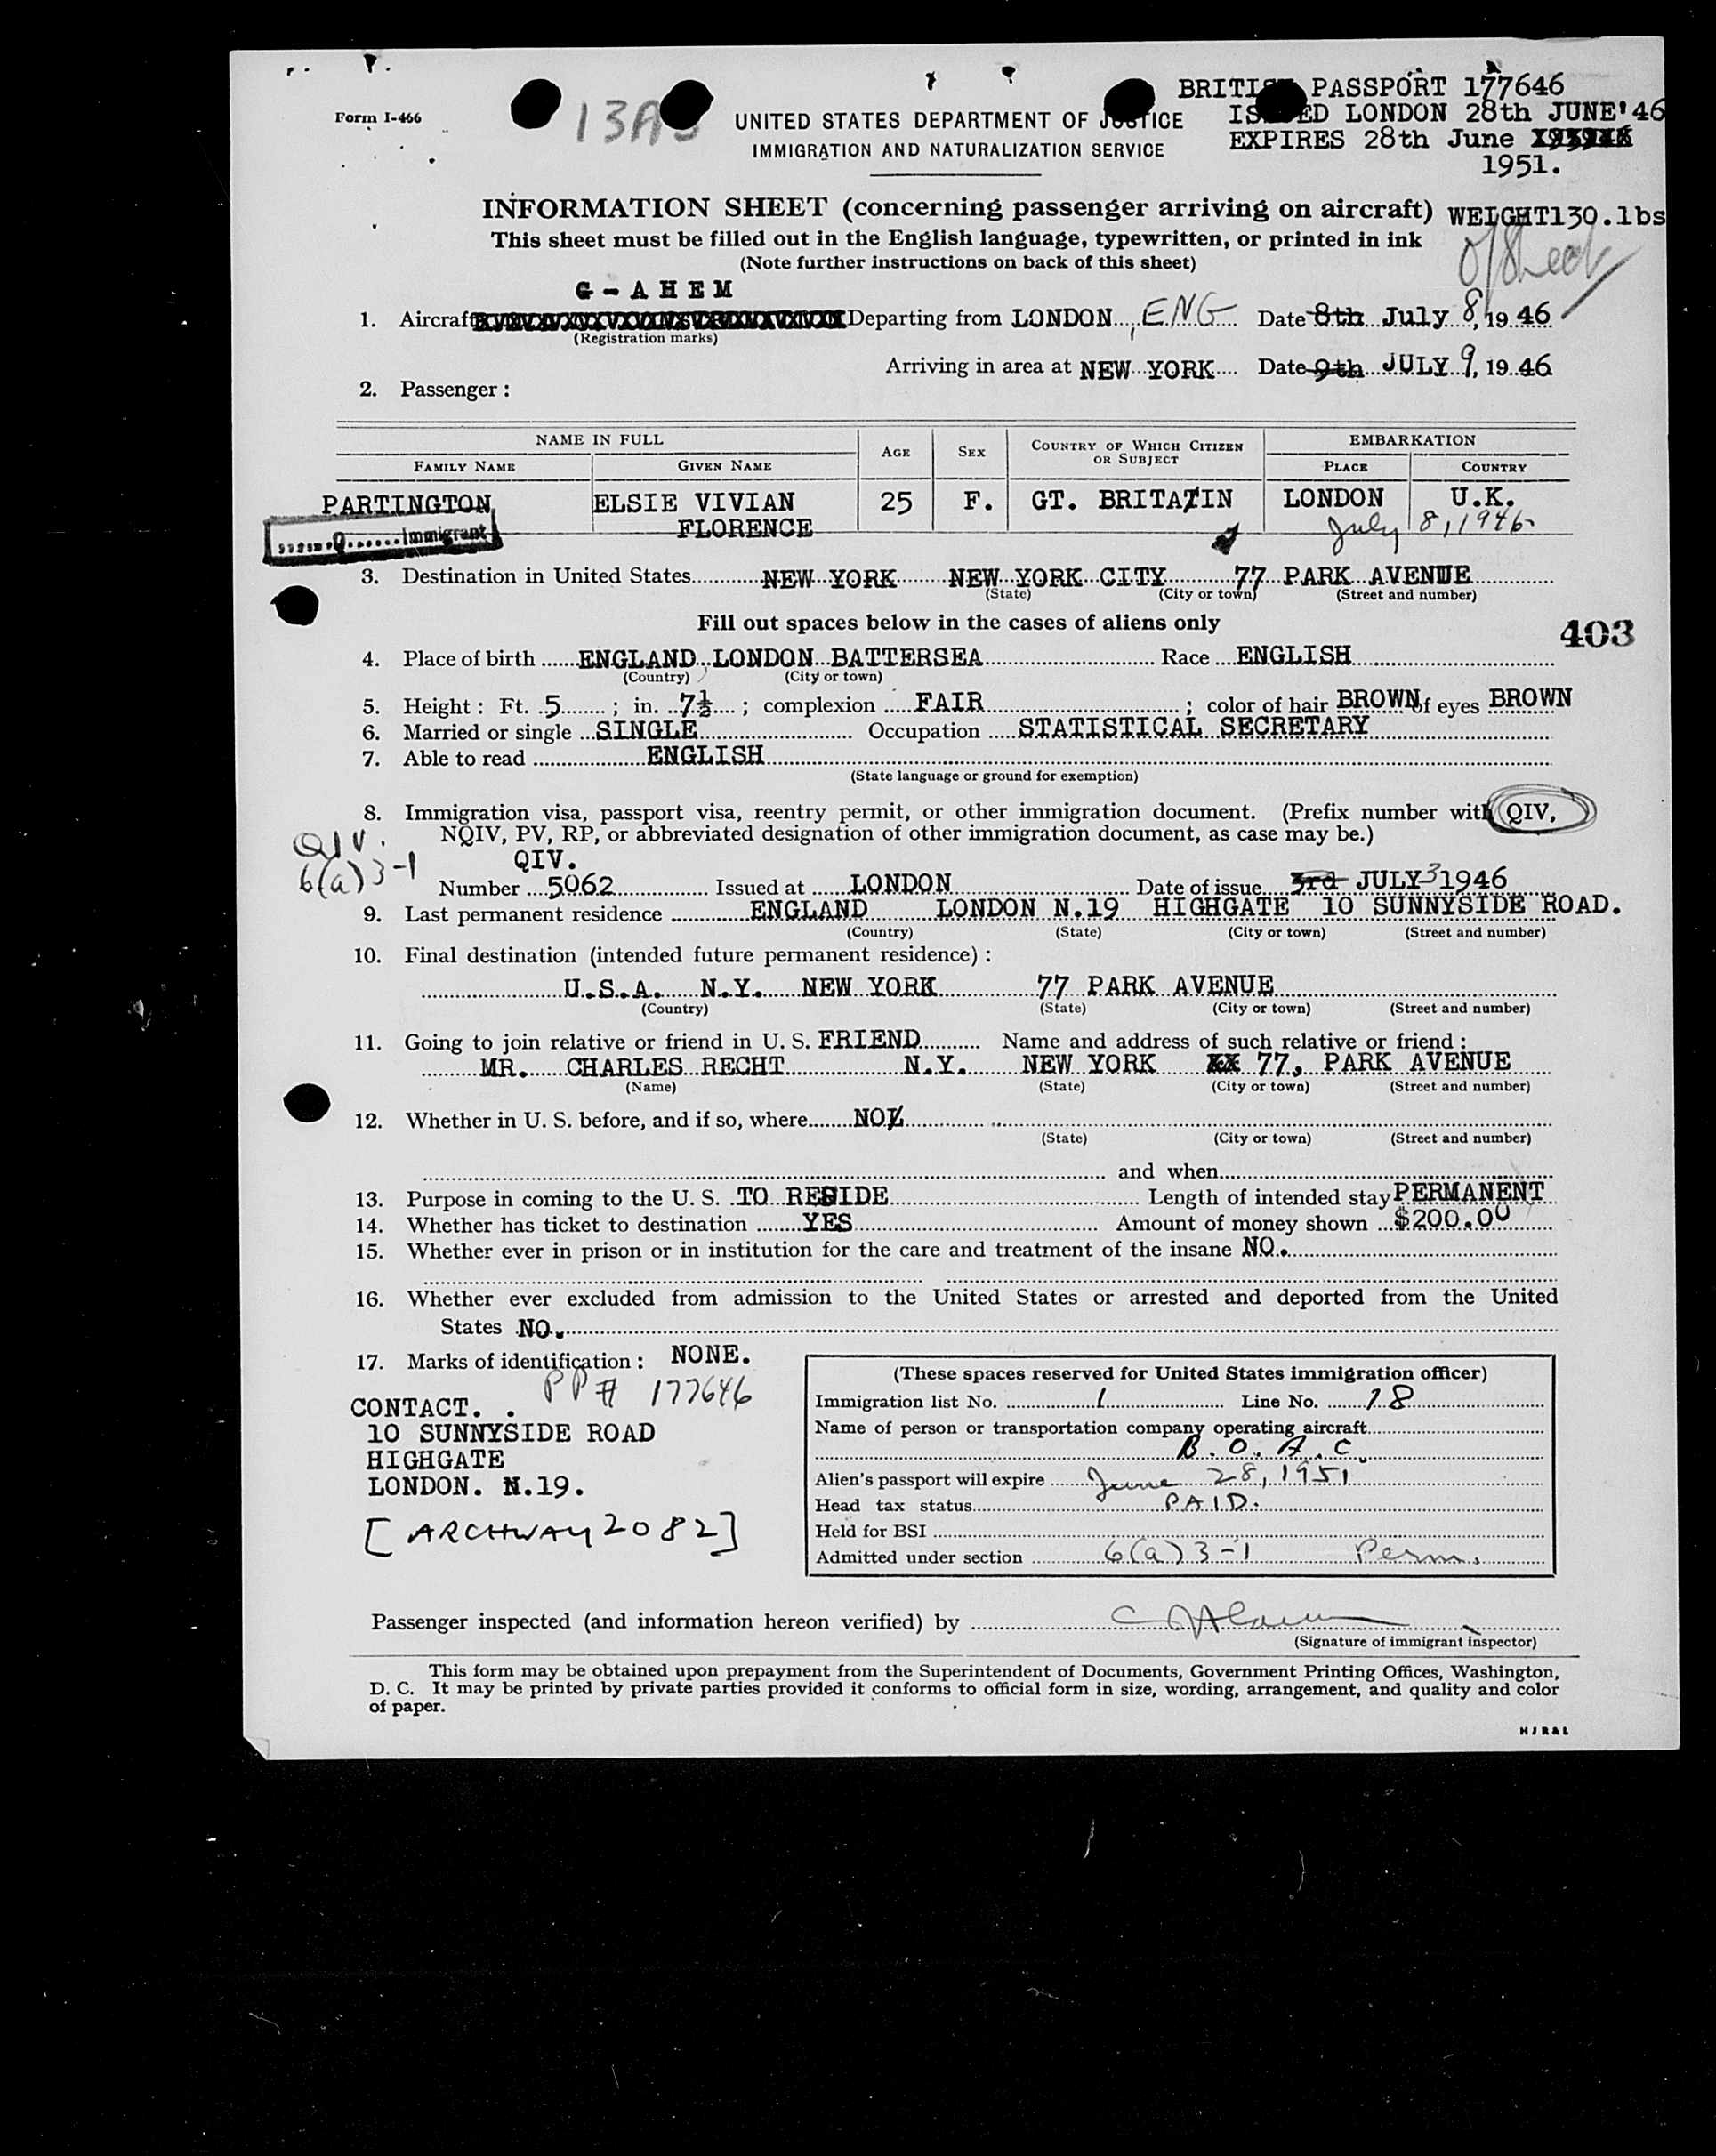 BRITISH PASSPORT 177646
Form I-466
UNITED STATES DEPARTMENT OF JUSTICE
ISSUED LONDON 28th JUNE'46
IMMIGRATION AND NATURALIZATION SERVICE
EXPIRES 28th June
1951.
INFORMATION SHEET (concerning passenger arriving on aircraft) WEIGHT130.lbs
This sheet must be filled out in the English language, typewritten, or printed in ink
(Note further instructions on back of this sheet)
G - A H E M
1. Aircraft Departing from LONDON, ENG Date 8th July 8, 19 46
(Registration marks)
Arriving in area at NEW YORK Date 9th JULY 9, 19 46
2. Passenger :
NAME IN FULL AGE SEX COUNTRY OF WHICH CITIZEN OR SUBJECT EMBARKATION
FAMILY NAME GIVEN NAME PLACE COUNTRY
PARTINGTON, ELSIE VIVIAN 25 F. GT. BRITAIN LONDON U.K.
FLORENCE July 8, 1946
Q Immigrant
3. Destination in United States NEW YORK NEW YORK CITY 77 PARK AVENUE
(State) (City or town) (Street and number)
Fill out spaces below in the cases of aliens only
403
4. Place of birth ENGLAND, LONDON BATTERSEA Race ENGLISH
(Country) (City or town)
5. Height : Ft. 5 ; in. 7½ ; complexion FAIR ; color of hair BROWN of eyes BROWN
6. Married or single SINGLE Occupation STATISTICAL SECRETARY
7. Able to read ENGLISH
(State language or ground for exemption)
8. Immigration visa, passport visa, reentry permit, or other immigration document. (Prefix number with QIV,
NQIV, PV, RP, or abbreviated designation of other immigration document, as case may be.)
QIV.
6(a)3-1
QIV.
Number 5062 Issued at LONDON Date of issue 3rd JULY 3 1946
9. Last permanent residence ENGLAND LONDON N.19 HIGHGATE 10 SUNNYSIDE ROAD.
(Country) (State) (City or town) (Street and number)
10. Final destination (intended future permanent residence) :
U.S.A. N.Y. NEW YORK 77 PARK AVENUE
(Country) (State) (City or town) (Street and number)
11. Going to join relative or friend in U. S. FRIEND Name and address of such relative or friend :
MR. CHARLES RECHT N.Y. NEW YORK XX 77, PARK AVENUE
(Name) (State) (City or town) (Street and number)
12. Whether in U. S. before, and if so, where NO
(State) (City or town) (Street and number)
and when
13. Purpose in coming to the U. S. TO RESIDE Length of intended stay PERMANENT
14. Whether has ticket to destination YES Amount of money shown $200.00
15. Whether ever in prison or in institution for the care and treatment of the insane NO.
16. Whether ever excluded from admission to the United States or arrested and deported from the United
States NO.
17. Marks of identification : NONE.
PP# 177646
CONTACT. .
10 SUNNYSIDE ROAD
HIGHGATE
LONDON. N.19.
[ARCHWAY 2082]
(These spaces reserved for United States immigration officer)
Immigration list No. 1 Line No. 18
Name of person or transportation company operating aircraft
B.O.A.C.
Alien's passport will expire June 28, 1951
Head tax status PAID.
Held for BSI
Admitted under section 6(a)3-1 Perm.
Passenger inspected (and information hereon verified) by
(Signature of immigrant inspector)
This form may be obtained upon prepayment from the Superintendent of Documents, Government Printing Offices, Washington,
D. C. It may be printed by private parties provided it conforms to official form in size, wording, arrangement, and quality and color
of paper.